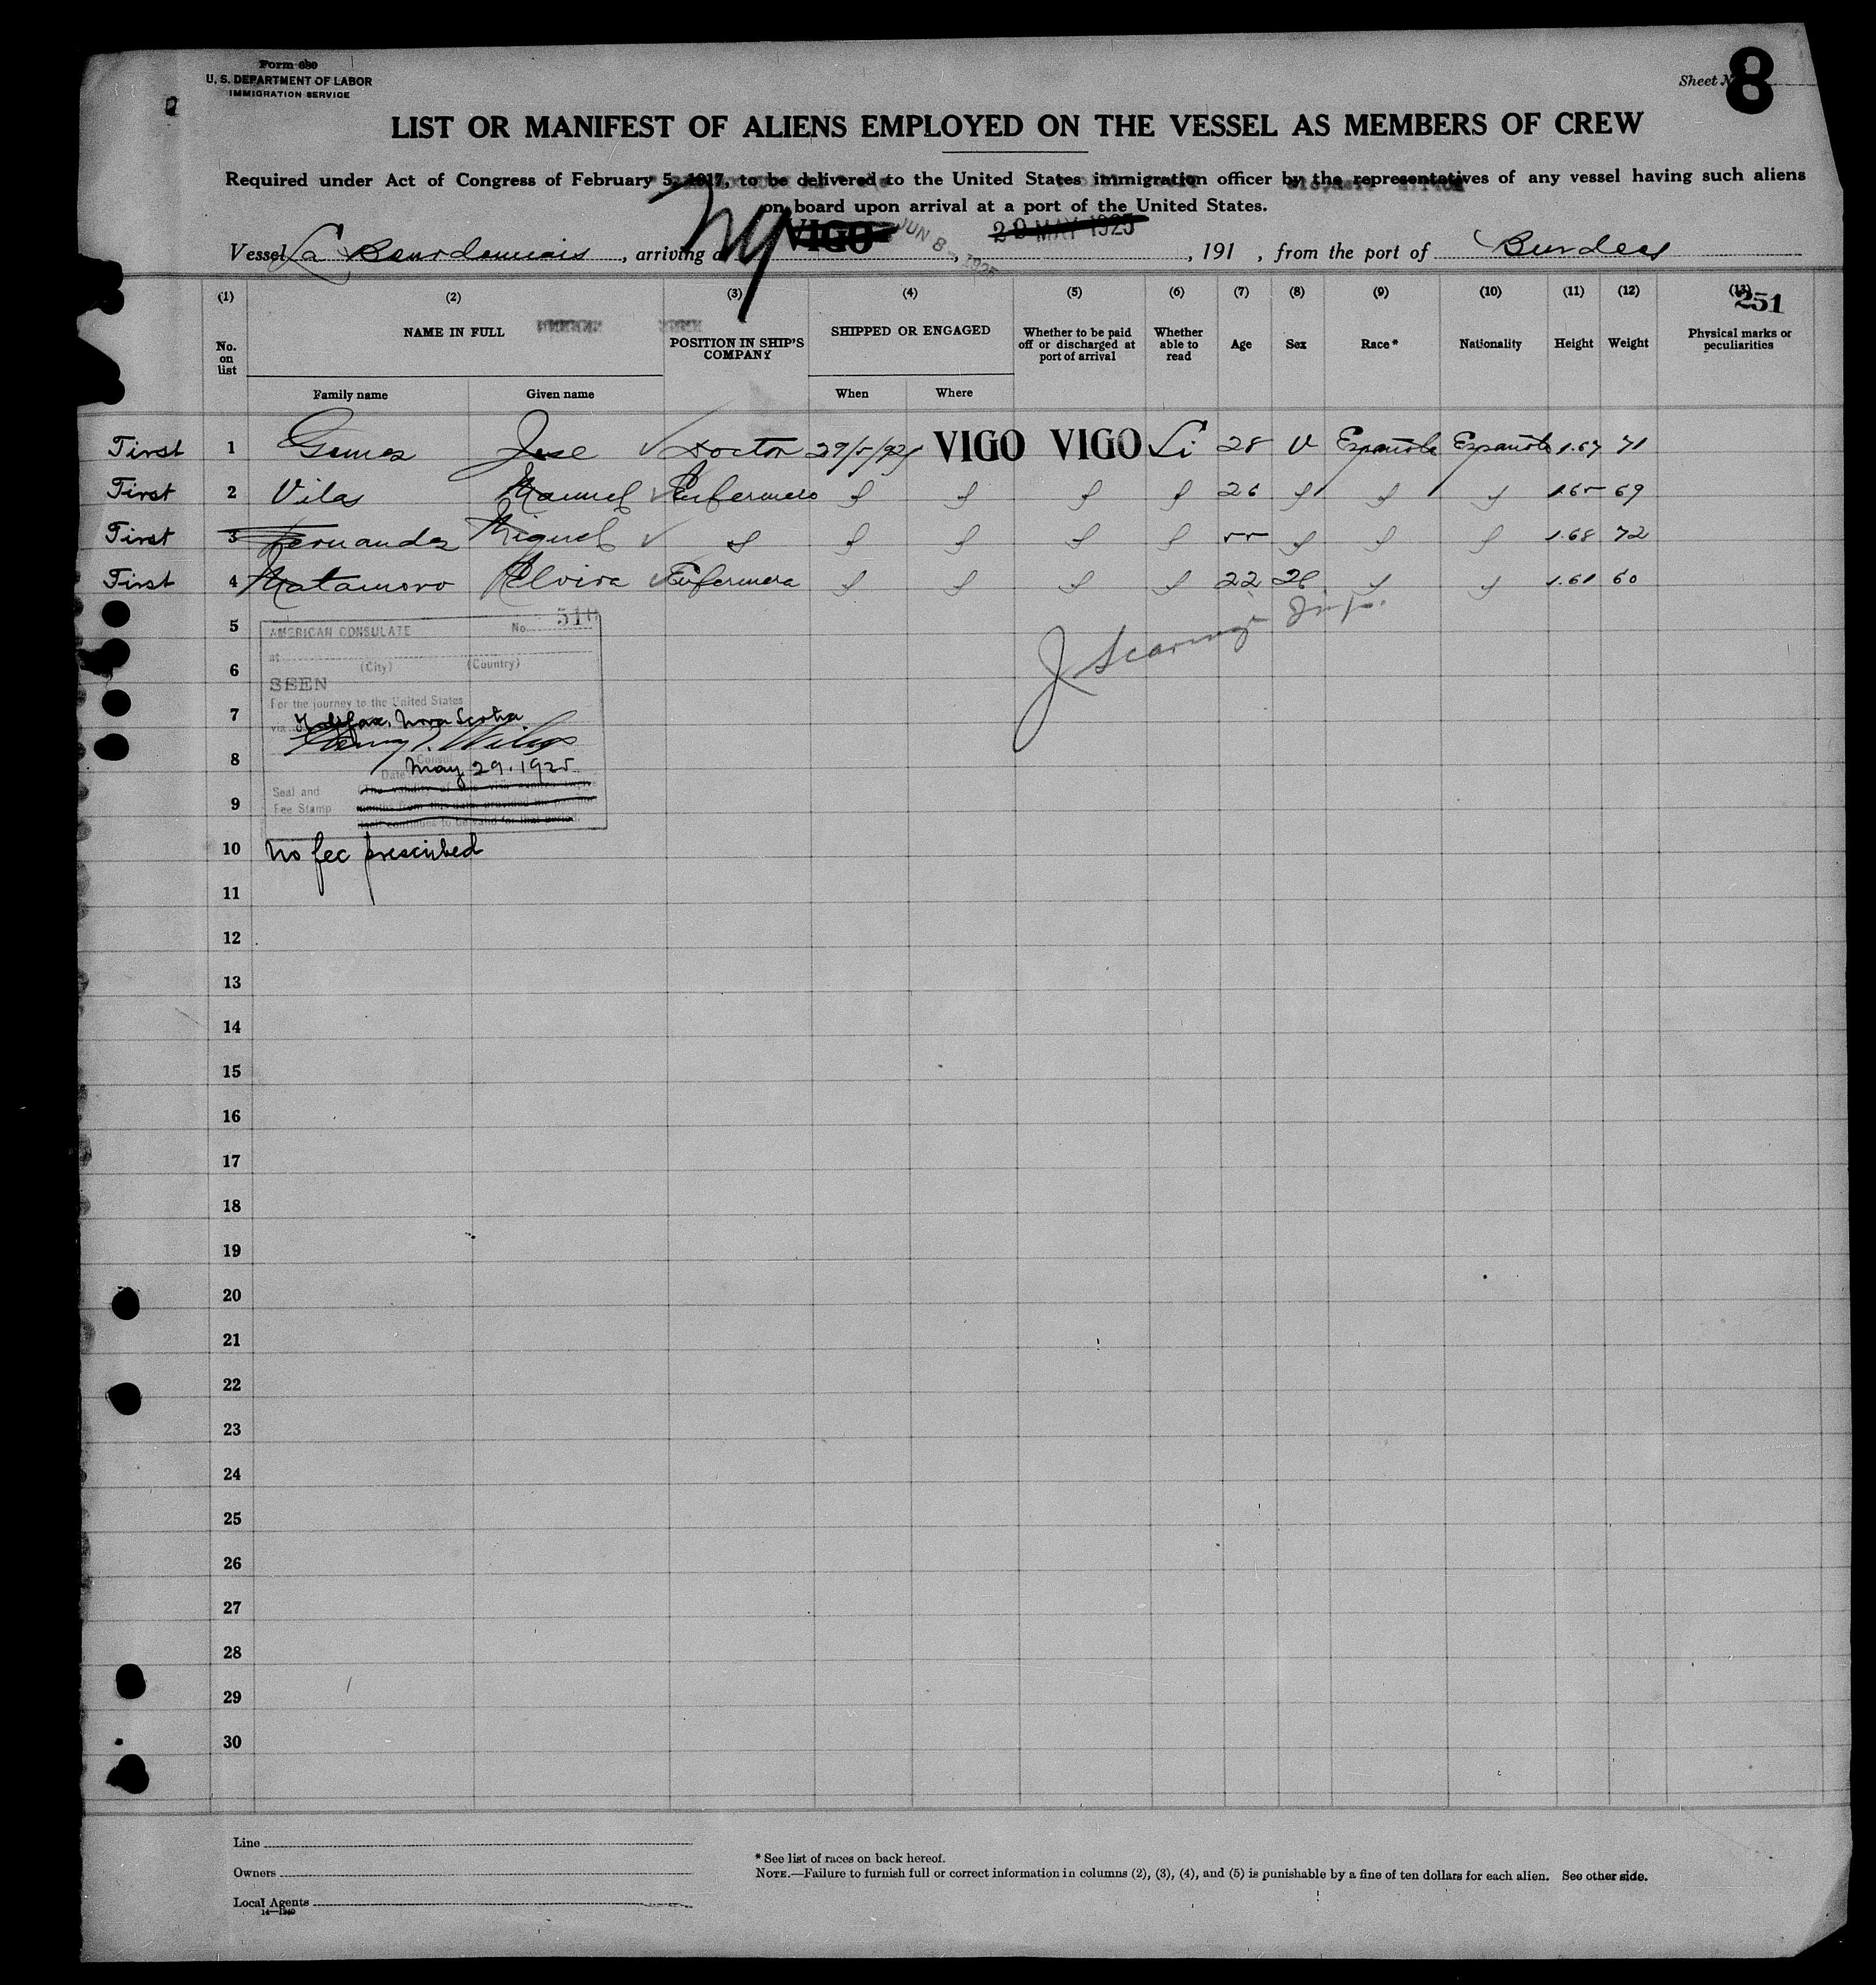 Form 680
U. S. DEPARTMENT OF LABOR
IMMIGRATION SERVICE
Sheet No. 8
LIST OR MANIFEST OF ALIENS EMPLOYED ON THE VESSEL AS MEMBERS OF CREW
Required under Act of Congress of February 5, 1917, to be delivered to the United States immigration officer by the representatives of any vessel having such aliens
on board upon arrival at a port of the United States.
Vessel La Bourdonnais, arriving at NY VIGO, JUN 8 - 1925 29 MAY 1925, 191 , from the port of Burdeos
(1) (2) (3) (4) (5) (6) (7) (8) (9) (10) (11) (12) (13)
251
No. on list NAME IN FULL POSITION IN SHIP'S COMPANY SHIPPED OR ENGAGED Whether to be paid off or discharged at port of arrival Whether able to read Age Sex Race* Nationality Height Weight Physical marks or peculiarities
Family name Given name When Where
First 1 Gomez Jose Doctor 29/5/925 VIGO VIGO Si 28 V Española Española 1.67 71
First 2 Vilas Manuel Enfermero 26 1.65 69
First 3 Fernandez Miguel 55 1.68 72
First 4 Matamoro Elvira Enfermera 22 1.61 60
5
AMERICAN CONSULATE No. 510
at
(City) (Country)
6
SEEN
For the journey to the United States
7
via Halifax, Nova Scotia
8
Consul
Date May 29. 1925
Seal and
Fee Stamp
9
10 No fee prescribed
11
12
13
14
15
16
17
18
19
20
21
22
23
24
25
26
27
28
29
30
Line
Owners
Local Agents
* See list of races on back hereof.
NOTE.—Failure to furnish full or correct information in columns (2), (3), (4), and (5) is punishable by a fine of ten dollars for each alien. See other side.